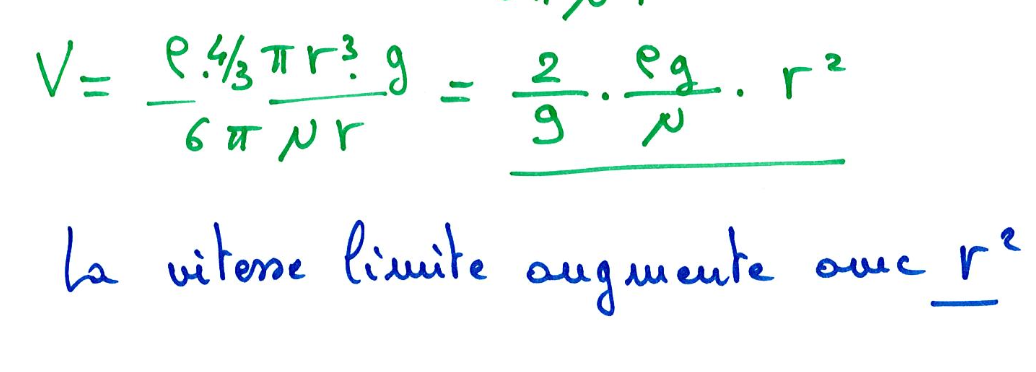 V = ρ.4/3 π r³. g / 6 π μ r = 2/9 . ρg/μ . r²
La vitesse limite augmente avec r²